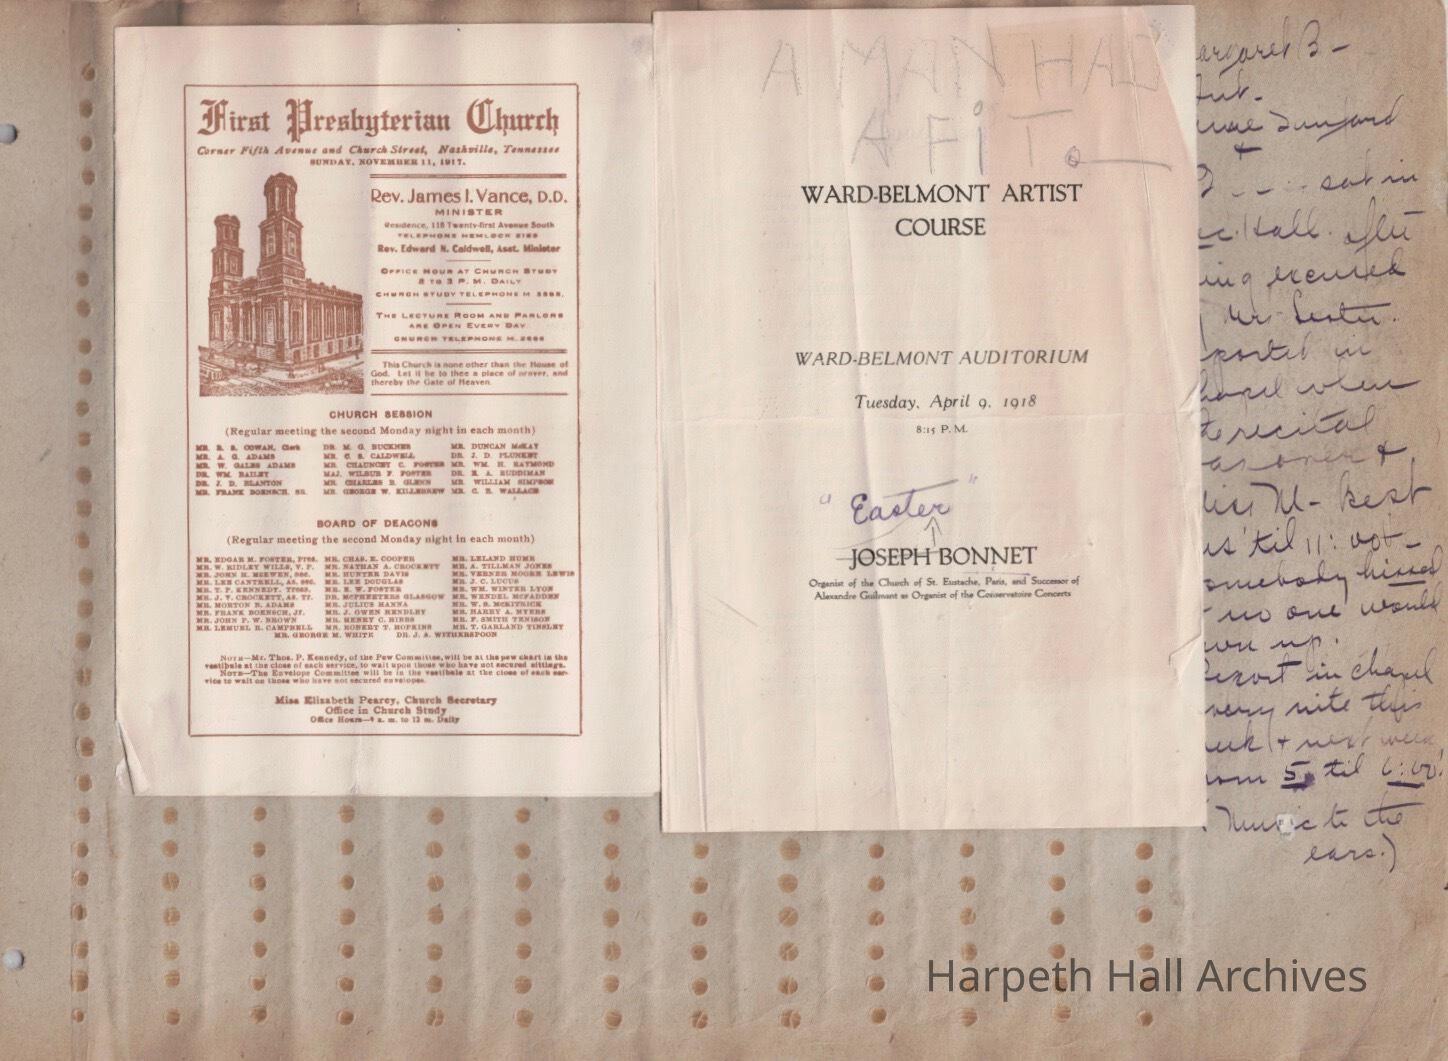 First Presbyterian Church
Corner Fifth Avenue and Church Street, Nashville, Tennessee
SUNDAY, NOVEMBER 11, 1917.
Rev. James I. Vance, D.D.
MINISTER
Residence, 118 Twenty-first Avenue South
TELEPHONE HEMLOCK
Rev. Edward N. Caldwell, Asst. Minister
OFFICE HOUR AT CHURCH STUDY
2 TO 3 P. M. DAILY
CHURCH STUDY TELEPHONE M
THE LECTURE ROOM AND PARLORS
ARE OPEN EVERY DAY
CHURCH TELEPHONE M.
This Church is none other than the House of
God. Let it be to thee a place of prayer, and
thereby the Gate of Heaven.
CHURCH SESSION
(Regular meeting the second Monday night in each month)
MR. B. S. COWAN, Clerk DR. M. G. BUCKNER MR. DUNCAN McKAY
MR. A. G. ADAMS MR. C. S. CALDWELL DR. J. D. PLUNKET
MR. W. GALES ADAMS MR. CHAUNCEY C. FOSTER MR. WM. H. RAYMOND
DR. WM. BAILEY MAJ. WILBUR F. FOSTER DR. E. A. RUDDIMAN
DR. J. D. BLANTON MR. CHARLES B. GLENN MR. WILLIAM SIMPSON
MR. FRANK BOENSCH, SR. MR. GEORGE W. KILLEBREW MR. C. B. WALLACE
BOARD OF DEACONS
(Regular meeting the second Monday night in each month)
MR. EDGAR M. FOSTER, Pres. MR. CHAS. E. COOPER MR. LELAND HUME
MR. W. RIDLEY WILLS, V. P. MR. NATHAN A. CROCKETT MR. A. TILLMAN JONES
MR. JOHN H. McEWEN, Sec. MR. HUNTER DAVIS MR. VERNER MOORE LEWIS
MR. LEE CANTRELL, As. Sec. MR. LEE DOUGLAS MR. J. C. LUCUS
MR. T. P. KENNEDY, Treas. MR. R. W. FOSTER MR. WM. WINTER LYON
MR. J. V. CROCKETT, As. Tr. DR. McPHEETERS GLASGOW MR. WENDEL McFADDEN
MR. MORTON B. ADAMS MR. JULIUS HANNA MR. W. B. McKITRICK
MR. FRANK BOENSCH, JR. MR. J. OWEN HENDLEY MR. HARRY A. MYERS
MR. JOHN P. W. BROWN MR. HENRY C. HIBBS MR. F. SMITH TENISON
MR. LEMUEL R. CAMPBELL MR. ROBERT T. HOPKINS MR. T. GARLAND TINSLEY
MR. GEORGE M. WHITE DR. J. A. WITHERSPOON
NOTE—Mr. Thos. P. Kennedy, of the Pew Committee, will be at the pew chart in the
vestibule at the close of each service, to wait upon those who have not secured sittings.
NOTE—The Envelope Committee will be in the vestibule at the close of each ser-
vice to wait on those who have not secured envelopes.
Miss Elizabeth Pearcy, Church Secretary
Office in Church Study
Office Hours—9 a. m. to 12 m. Daily
A MAN HAD
A FiT.
WARD-BELMONT ARTIST
COURSE
WARD-BELMONT AUDITORIUM
Tuesday, April 9, 1918
8:15 P. M.
"Easter"
JOSEPH BONNET
Organist of the Church of St. Eustache, Paris, and Successor of
Alexandre Guilmant as Organist of the Conservatoire Concerts
argaret B -
sat in
Hall. after
ing excused
Mr. Lester.
ported in
hapel when
recital
as over &
iss M - Kept
us 'til 11:00 -
omebody hissed
no one would
own up.
Report in chapel
very nite this
eek + next week
rom 5 til 6:00.
Music to the
ears.)
Harpeth Hall Archives